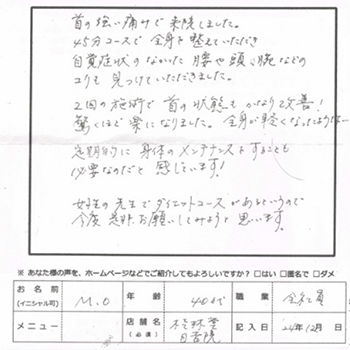 首の強い痛みで来院しました。
45分コースで全身を整えていただき
自覚症状のなかった腰や頭、腕などの
コリも見つけていただきました。
2回の施術で首の状態もかなり改善!
驚くほど楽になりました。全身が軽くなったような…
定期的に身体のメンテナンスをすることも
必要なのだと感じています!
女性の先生でダイエットコースがあるというので
今度是非お願いしてみようと思います。
※ あなた様の声を、ホームページなどでご紹介してもよろしいですか? □はい □匿名で □ダメ
お名前 (イニシャル可) M.O 年齢 40代 職業 会社員
メニュー 店舗名 (必須) 整体堂 記入日 24年12月 日